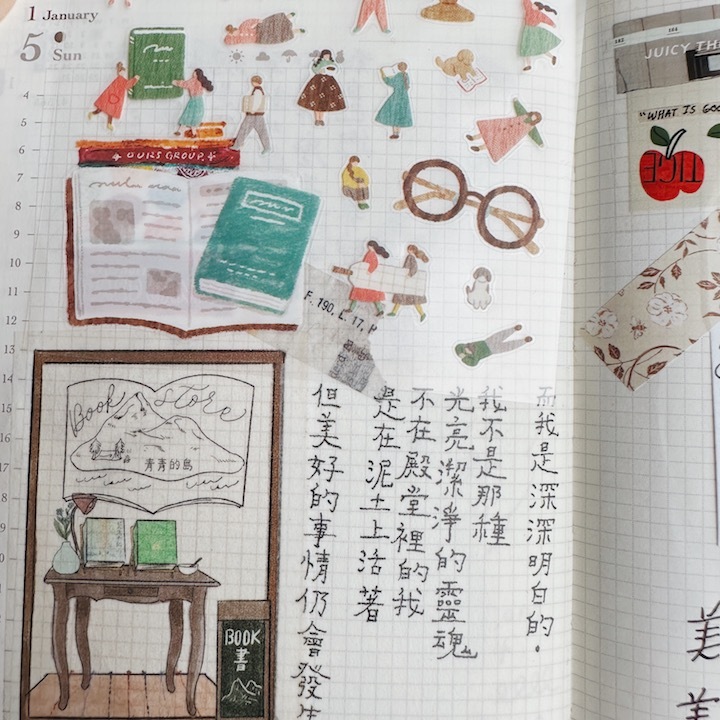 1 January
5 Sun
4
5
6
7
8
9
10
11
12
13
14
15
16
17
OURS GROUP
F. 190, L. 17, P
Book store
青青的島
BOOK
書
而我是深深明白的.
我不是那種
光亮潔淨的靈魂
不在殿堂裡的我
是在泥土上活著
但美好的事情仍會發生
JUICY TH
"WHAT IS GOO
美
美